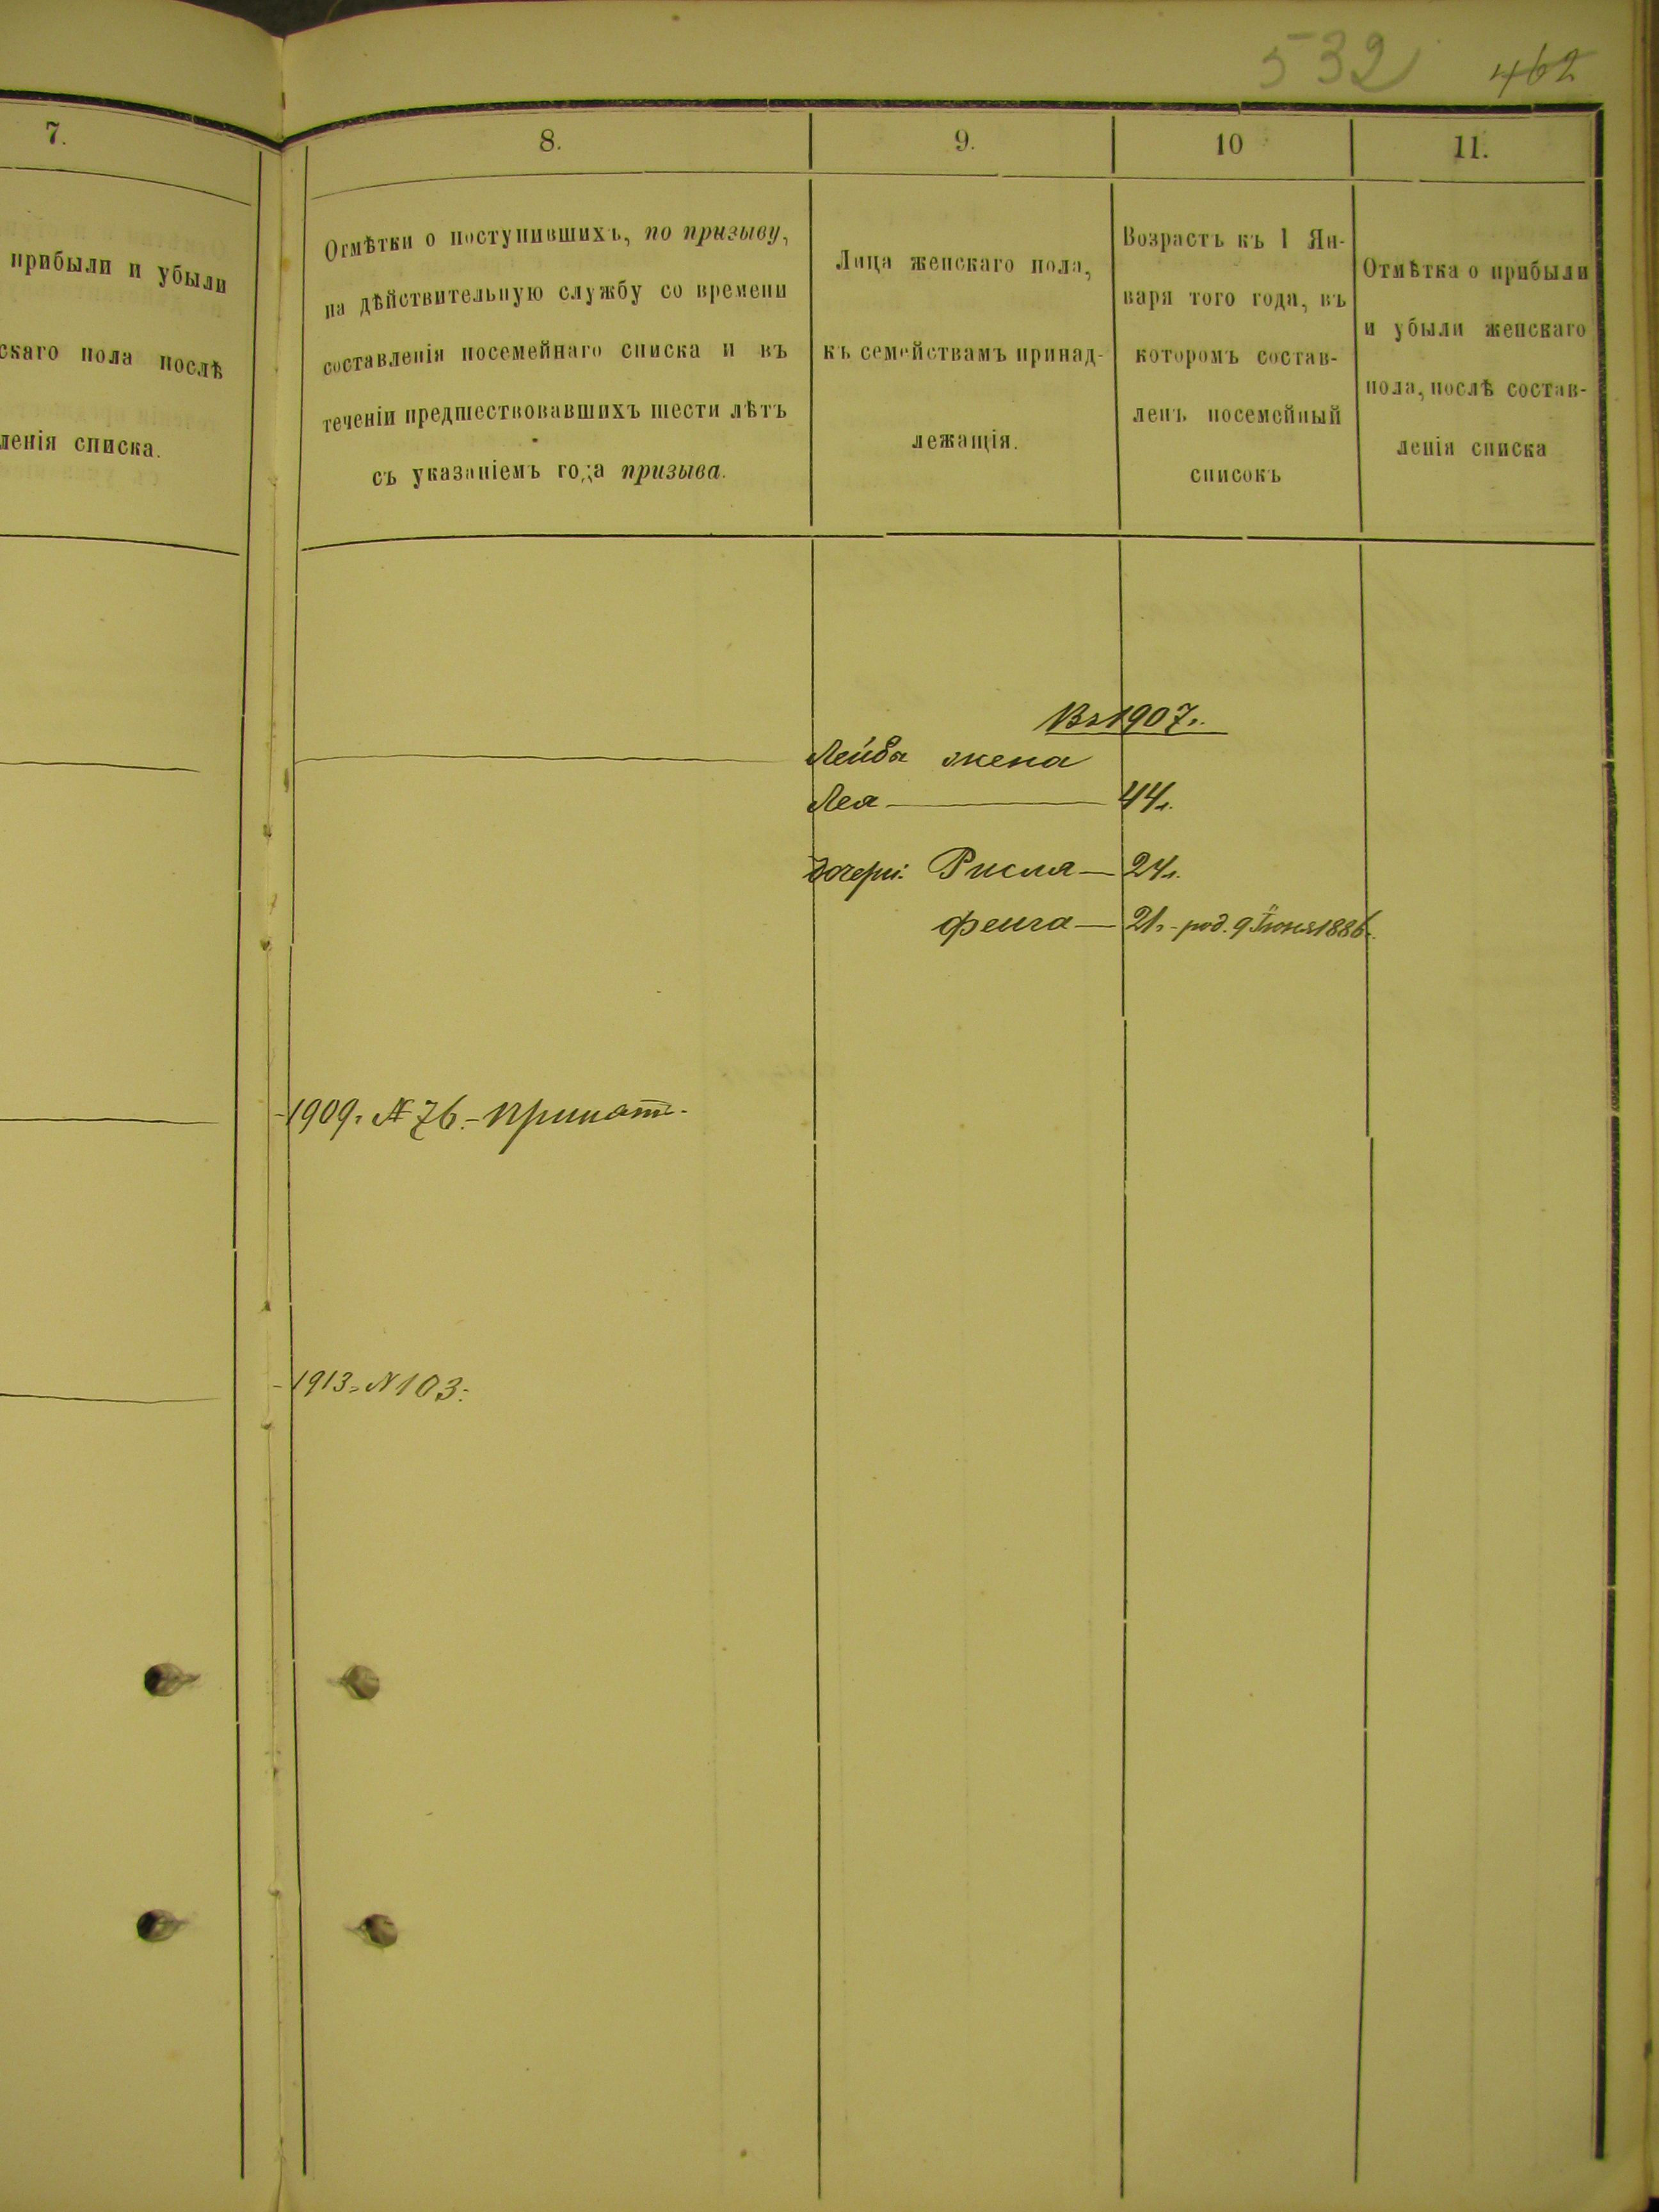 532 462
7.
прибыли и убыли
скаго пола послѣ
ленія списка.
8.
Отмѣтки о поступившихъ, по призыву,
на дѣйствительную службу со времени
составленія посемейнаго списка и въ
теченіи предшествовавшихъ шести лѣтъ
съ указаніемъ года призыва.
9.
Лица женскаго пола,
къ семействамъ принад-
лежащія.
10
Возрастъ къ 1 Ян-
варя того года, въ
которомъ состав-
ленъ посемейный
списокъ
11.
Отмѣтка о прибыли
и убыли женскаго
пола, послѣ состав-
ленія списка
Въ 1907г.
Лейба жена
Лея — 44г.
дочери: Рисля — 24г.
Фейга — 21г. - род. 9 Іюня 1886г.
- 1909г. № 76. - Принятъ.
- 1913г. № 103.